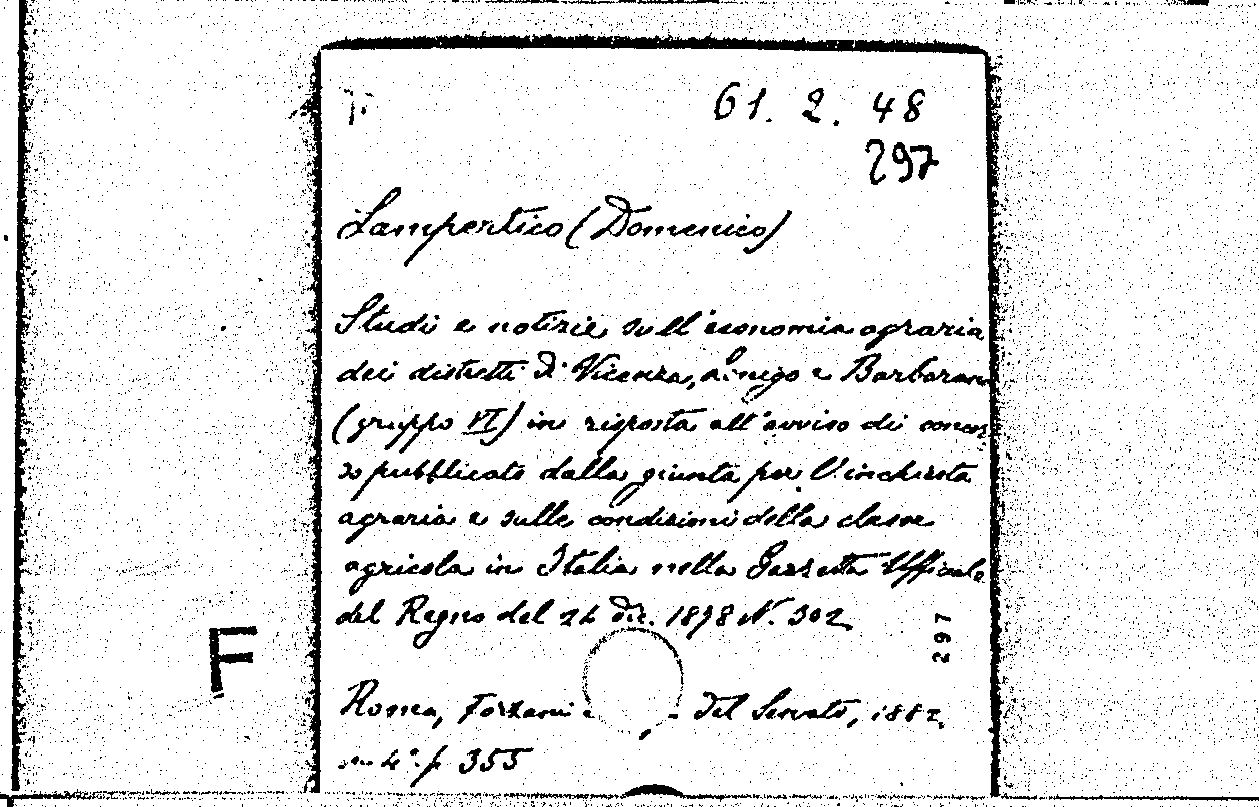 61. 2. 48
297
Lampertico (Domenico)
Studi e notizie sull'economia agraria
dei distretti di Vicenza, Lonigo e Barbarano
(gruppo VI) in risposta all'avviso di concor
so pubblicato dalla giunta per l'inchiesta
agraria e sulle condizioni della classe
agricola in Italia nella Gazzetta Ufficiale
del Regno del 24 dic. 1878 N. 302
297
F
Roma, Forzani e del Senato, 1882
in 4° p 355